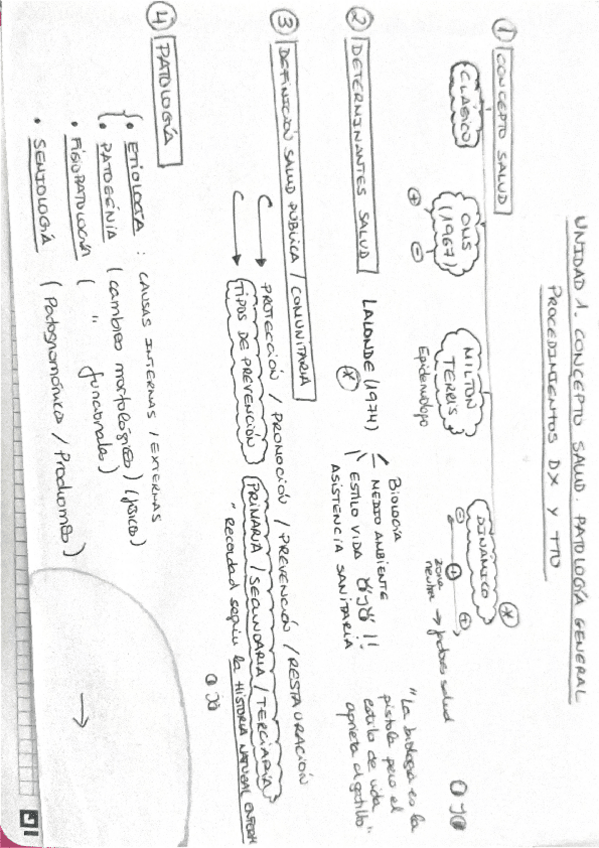 UNIDAD 1. CONCEPTO SALUD. PATOLOGÍA GENERAL
PROCEDIMIENTOS DX Y TTO
① CONCEPTO SALUD
CLÁSICO
OMS
(1967)
⊕ ⊖
MILTON
TERRIS
Epidemiólogo
DINÁMICO *
⊖ ⊕ ⊕
zona
neutral → salud
② DETERMINANTES SALUD
LALONDE (1974)
*
Biología
MEDIO AMBIENTE
ESTILO VIDA OJO !!
ASISTENCIA SANITARIA
"La biología es la
pistola pero el
estilo de vida
aprieta el gatillo"
OJO
③ DEFINICIÓN SALUD PÚBLICA / COMUNITARIA
→ PROTECCIÓN / PROMOCIÓN / PREVENCIÓN / RESTAURACIÓN
→ TIPOS DE PREVENCIÓN (PRIMARIA / SECUNDARIA / TERCIARIA)
Recordad según la HISTORIA NATURAL ENFERM
OJO
④ PATOLOGÍA
• ETIOLOGÍA : CAUSAS INTERNAS / EXTERNAS
• PATOGENIA (cambios morfológicos) (físico)
• FISIOPATOLOGÍA ( " funcionales)
• SEMIOLOGÍA (Patognomónico / Prodromos)
→